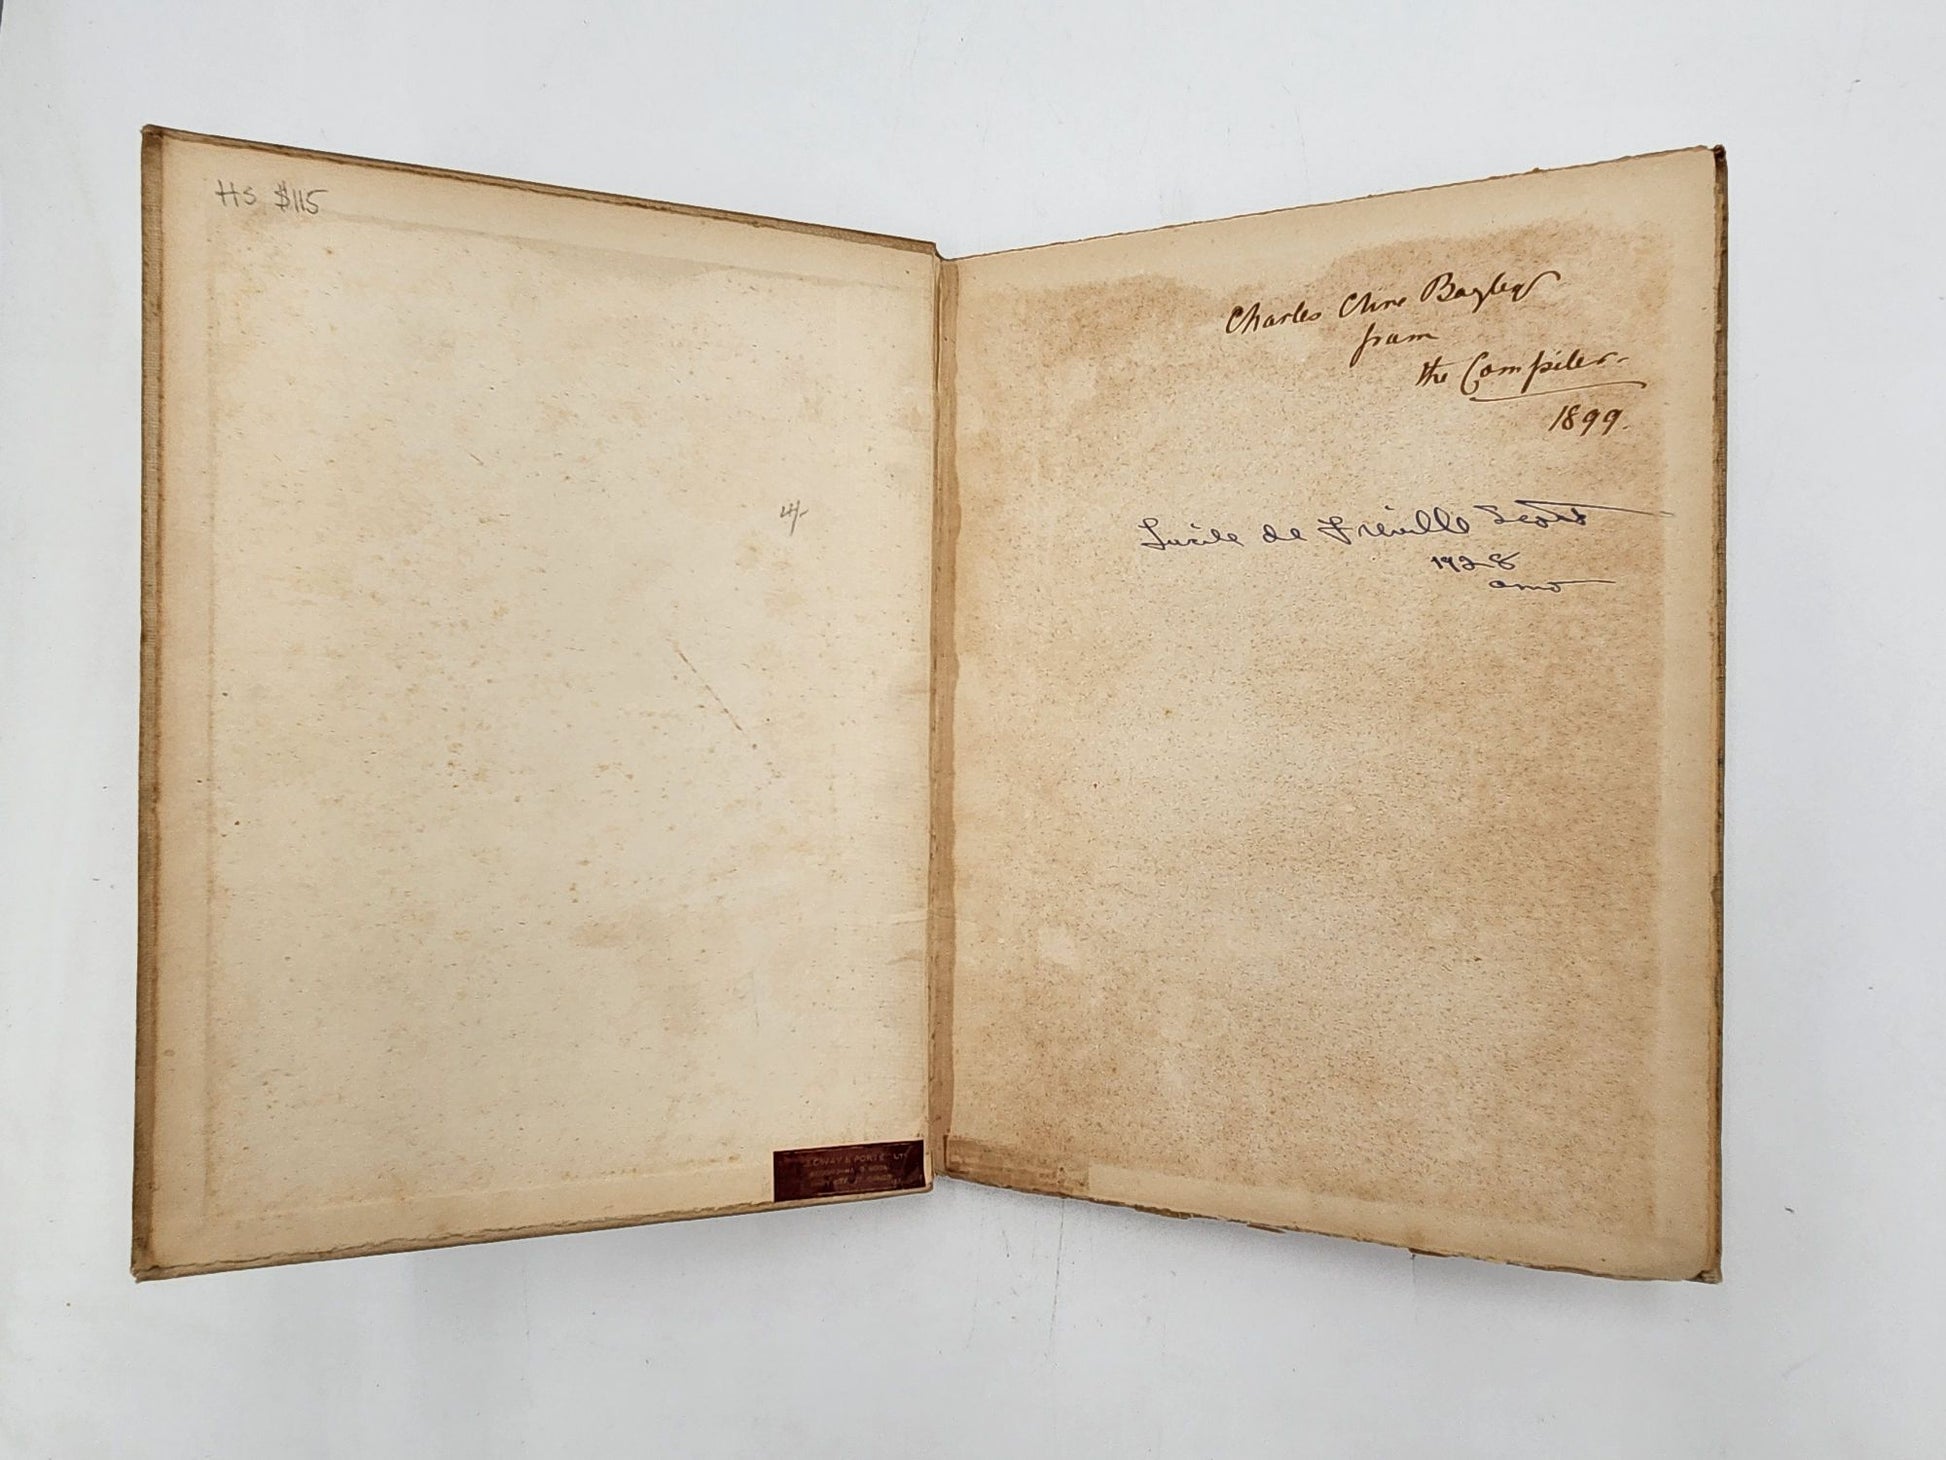 HS $115
4/-
Charles Clive Bayley
from
the Compiler.
1899.
Lucile de Fréville Scott
1928